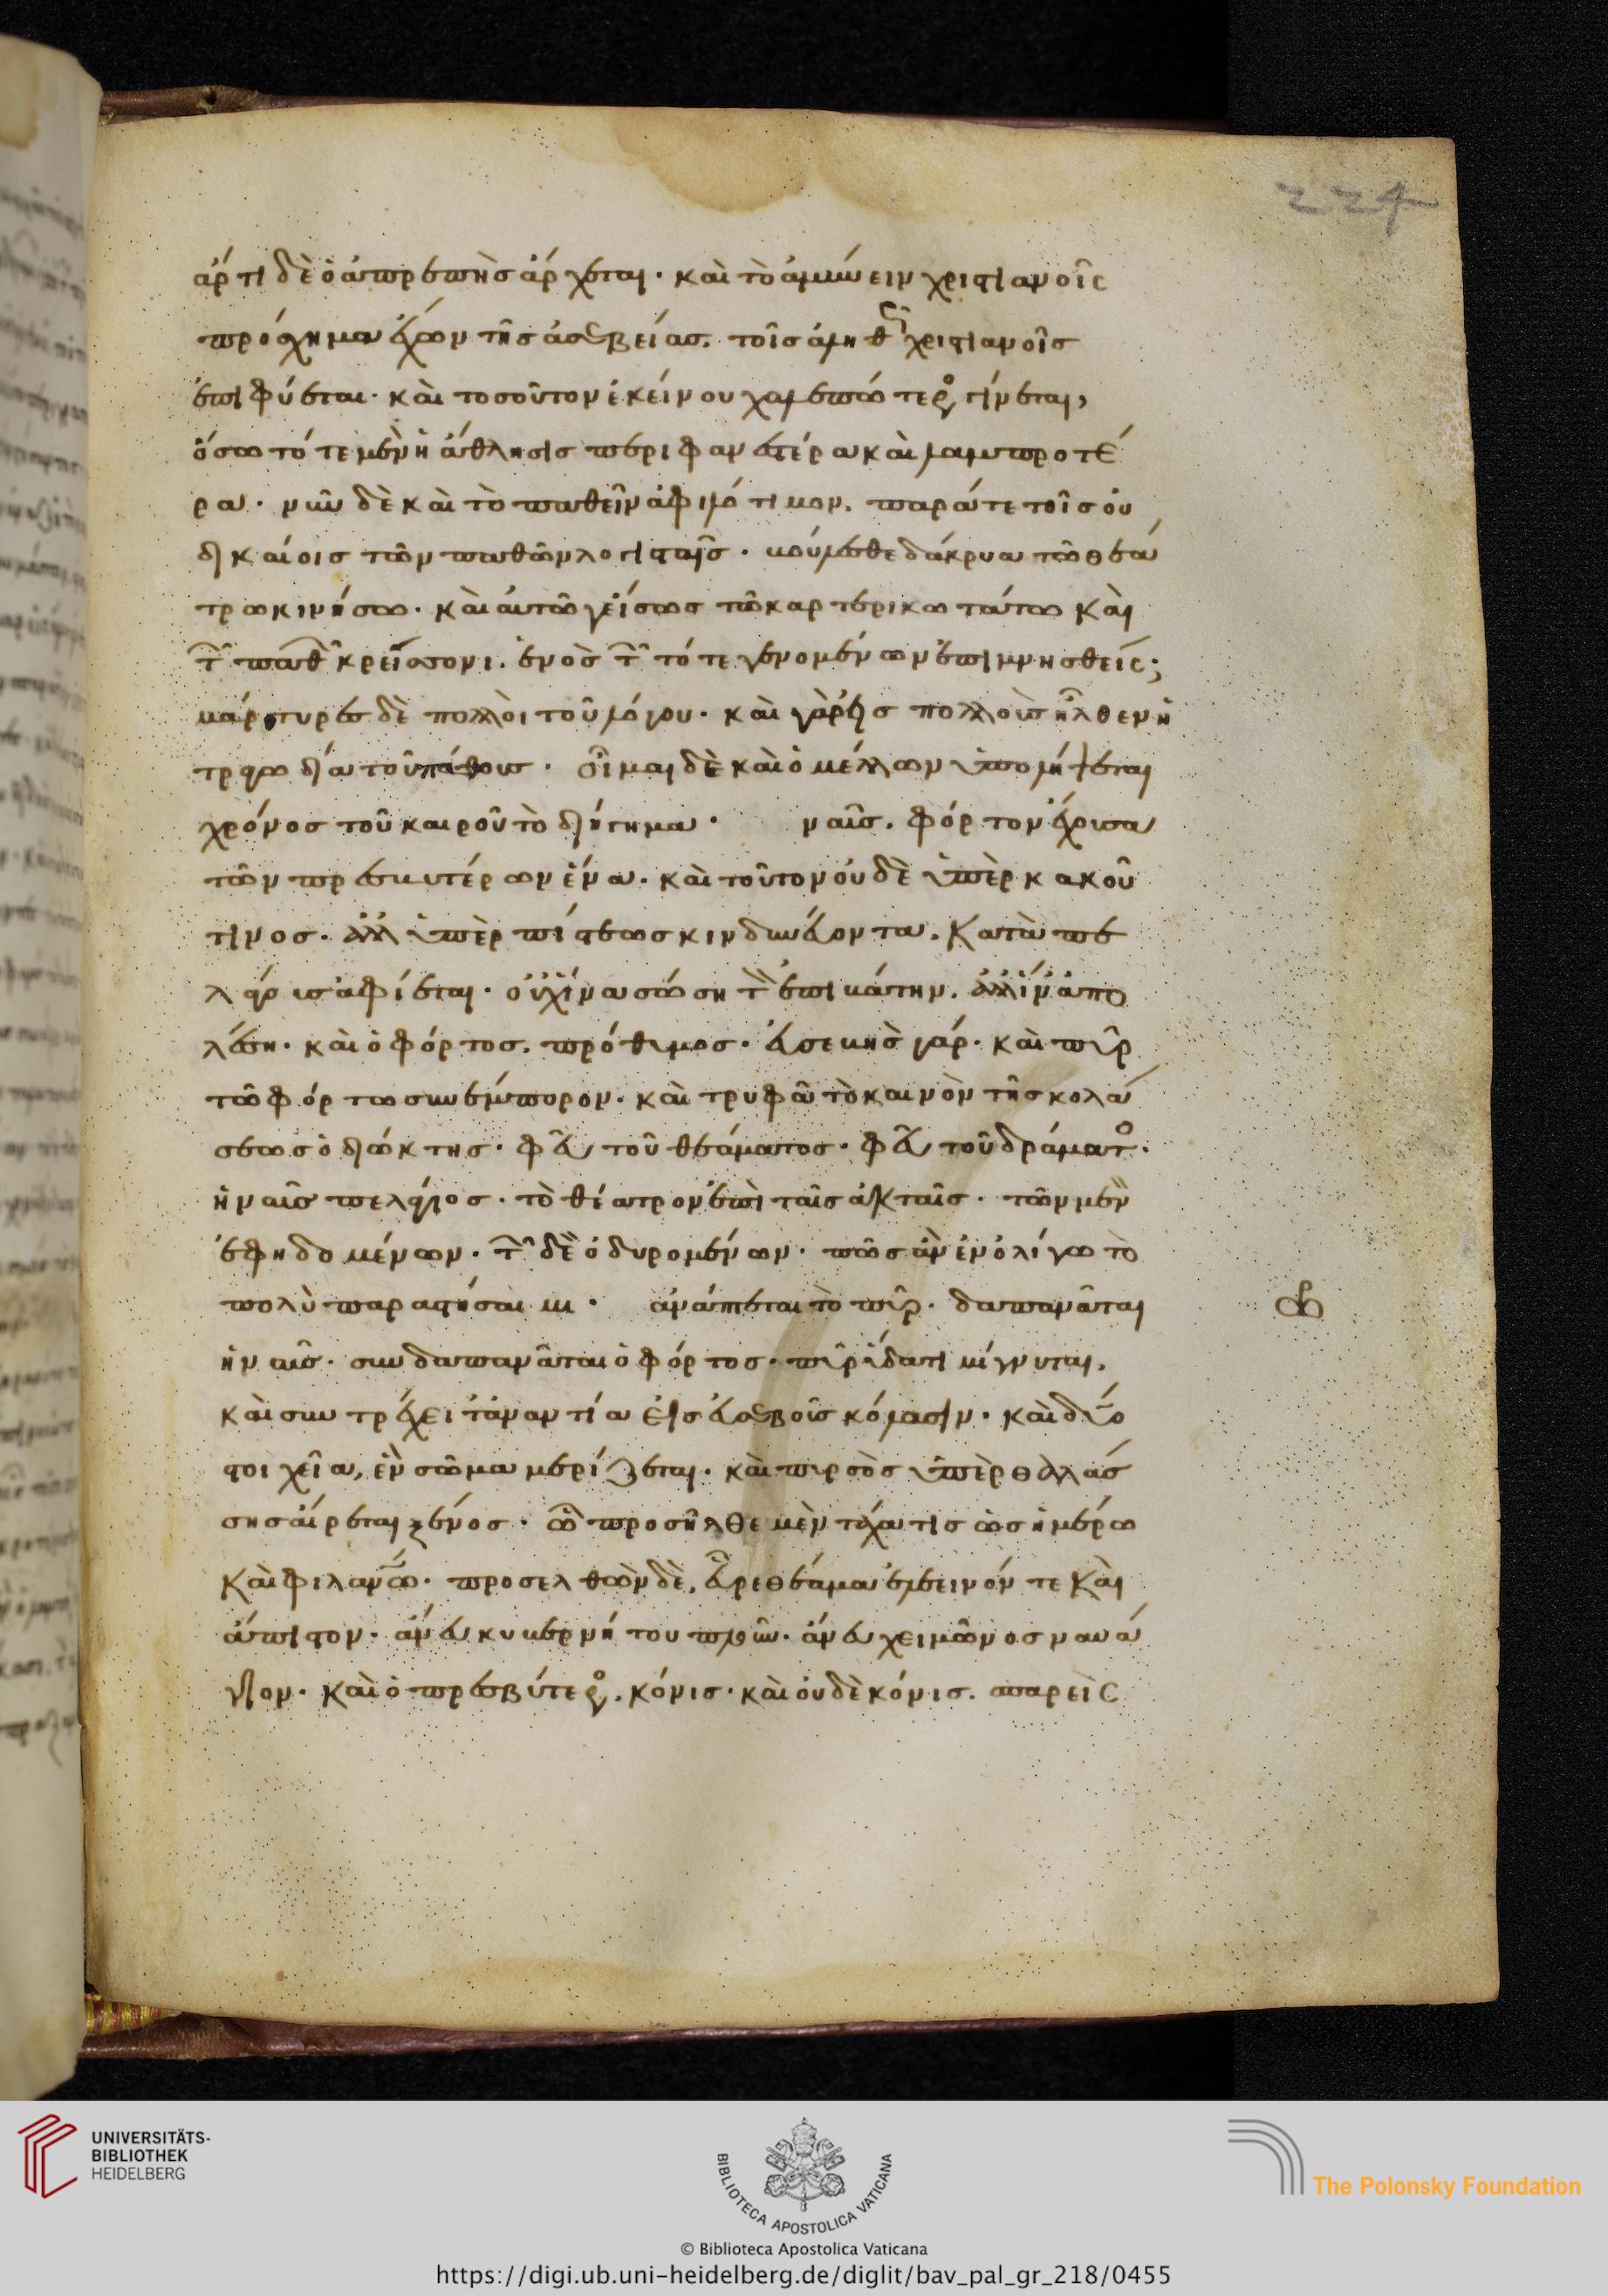 ἄρτι δὲ ὁ ἀπρεπὴς ἄρχεται· καὶ τὸ ἀμύνειν χριστιανοῖς
πρόσχημα ἔχων τῆς ἀσεβείας. τοῖς ἀληθῶς χριστιανοῖς
ἐπιφύεται· καὶ τοσοῦτον ἐκείνου χαλεπώτερος γίνεται,
ὅσω τότε μὲν ἡ ἄθλησις περιφανεστέρα καὶ λαμπροτέ
ρα· νῦν δὲ καὶ τὸ παθεῖν ἀφιλότιμον. παρά τε τοῖς οὐ
δικαίοις τῶν παθῶν λογισταῖς· βούλεσθε δάκρυα τῶ θεά
τρω κινήσω· καὶ αὐτῶ γ' ἴσως τῶ καρτερικῶ τούτω καὶ
τῶν παθῶν κρείσσονι. ἑνὸς τῶν τότε γενομένων ἐπιμνησθείς;
μάρτυρες δὲ πολλοὶ τοῦ λόγου· καὶ γὰρ εἰς πολλοὺς ἦλθεν ἡ
τραγωδία τοῦ πάθους· οἶμαι δὲ καὶ ὁ μέλλων ὑπολήψεται
χρόνος τοῦ καιροῦ τὸ διήγημα· ναῦς. φόρτον ἔχουσα
τῶν πρεσβυτέρων ἕνα· καὶ τοῦτον οὐδὲ ὑπὲρ κακοῦ
τινος· ἀλλ' ὑπὲρ πίστεως κινδυνεύοντα. κατὰ πε
λάγους ἀφίεται· οὐχ ἵνα σώση τὸν ἐπιβάτην. ἀλλ' ἵν' ἀπο
λέση· καὶ ὁ φόρτος. πρόθυμος· εὐσεβὴς γάρ· καὶ πῦρ
τῶ φόρτω συνέμπορον· καὶ τρυφᾶ τὸ καινὸν τῆς κολά
σεως ὁ διώκτης· φεῦ τοῦ θεάματος· φεῦ τοῦ δράματος·
ἡ ναῦς πελάγιος· τὸ θέατρον ἐπὶ ταῖς ἀκταῖς· τῶν μὲν
ἐφηδομένων· τῶν δὲ ὀδυρομένων· πῶς ἂν ἐν ὀλίγω τὸ
πολὺ παραστήσαιμι· ἀνάπτεται τὸ πῦρ· δαπανᾶται
ἡ ναῦς· συνδαπανᾶται ὁ φόρτος· πῦρ ὕδατι μίγνυται.
καὶ συντρέχει τἀναντία εἰς εὐσεβοῦς κόλασιν· καὶ δύο
στοιχεῖα, ἓν σῶμα μερίζεται· καὶ πυρσὸς ὑπὲρ θαλάσ
σης αἴρεται ξένος· ὧ προσῆλθε μὲν τάχα τις ὡς ἡμέρω
καὶ φιλανθρώπω· προσελθὼν δὲ, εὗρε θέαμα ἐλεεινόν τε καὶ
ἄπιστον· ἄνευ κυβερνήτου πλοῦν· ἄνευ χειμῶνος ναυά
γιον· καὶ ὁ πρεσβύτερος. κόνις· καὶ οὐδὲ κόνις. σπαρεὶς
224
UNIVERSITÄTS-
BIBLIOTHEK
HEIDELBERG
BIBLIOTECA APOSTOLICA VATICANA
The Polonsky Foundation
© Biblioteca Apostolica Vaticana
https://digi.ub.uni-heidelberg.de/diglit/bav_pal_gr_218/0455